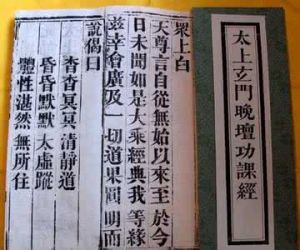 太上玄門晚壇功課經
眾上白
天尊言自從無始以來至於今
日未聞如是大乘經典我等緣
茲幸會廣及一切道果圓明而
說偈曰
杳杳冥冥清靜道
昏昏默默太虛蹤
體性湛然無所住